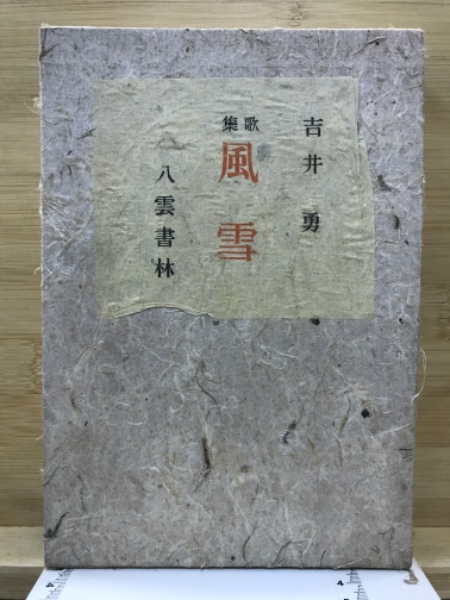 吉井勇
歌集
風雪
八雲書林
4
4